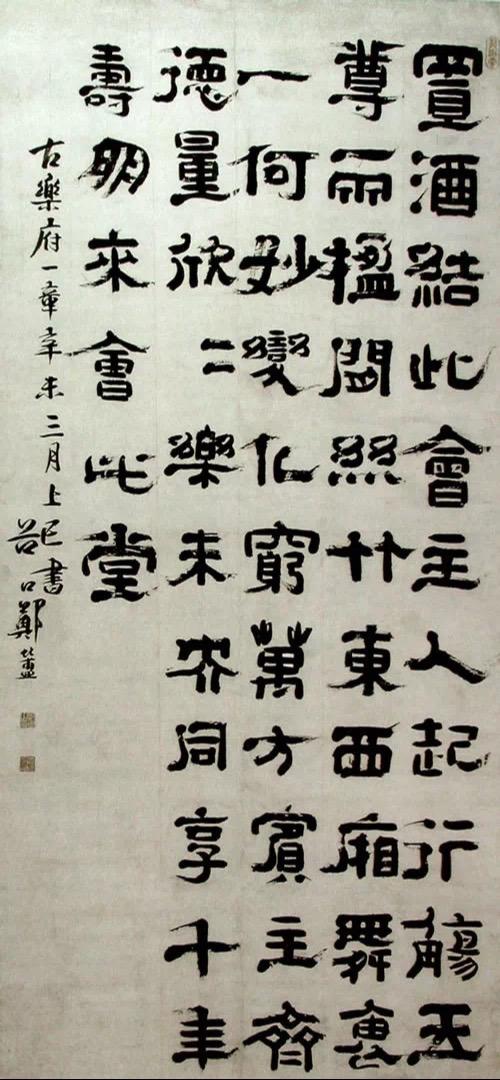 置酒結此會主人起行觴玉
尊兩楹間絲竹東西廂舞褎
一何妙變化窮萬方賓主齊
德量欣〻樂未央同享千年
壽明來會此堂
古樂府一章辛未三月上巳書
谷口鄭簠